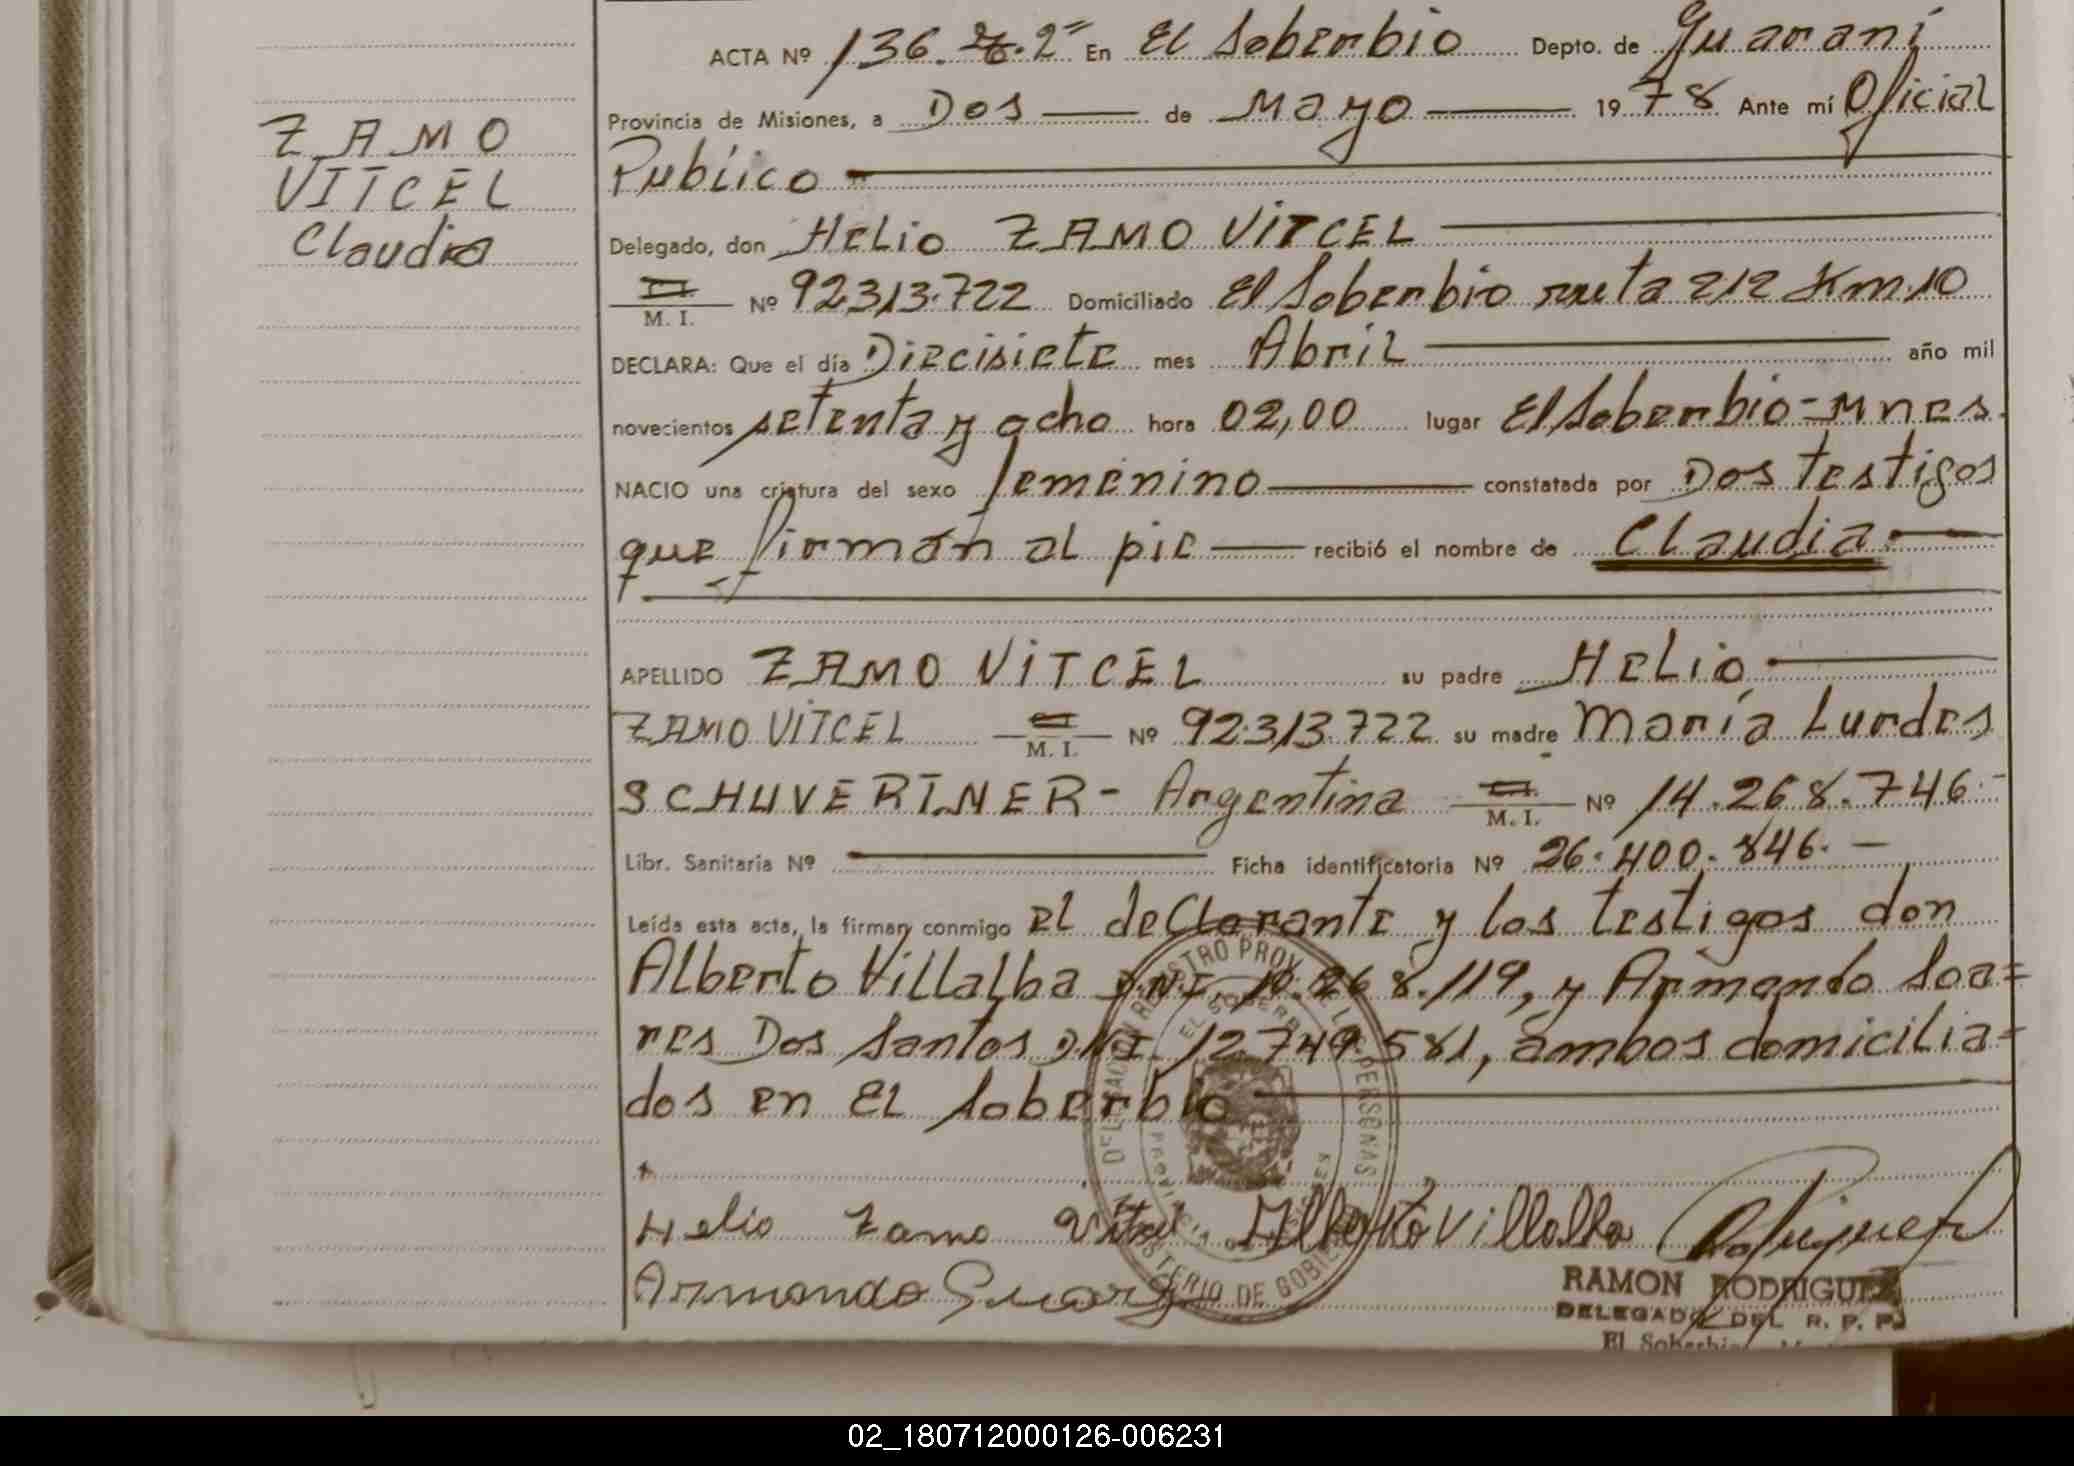 ACTA Nº 136. T. 2º En El Soberbio Depto. de Guaraní
Provincia de Misiones, a Dos de Mayo 1978 Ante mí Oficial
Publico
Delegado, don Helio ZAMO VITCEL
M. I. Nº 92.313.722 Domiciliado El Soberbio ruta 212 Km. 10
DECLARA: Que el día Diecisiete mes Abril año mil
novecientos setenta y ocho hora 02,00 lugar El Soberbio-Mnes.
NACIO una criatura del sexo femenino constatada por Dos testigos
que firman al pie recibió el nombre de Claudia
ZAMO
VITCEL
Claudia
APELLIDO ZAMO VITCEL su padre Helio
ZAMO VITCEL M. I. Nº 92.313.722 su madre María Lurdes
SCHUVERTNER - Argentina M. I. Nº 14.268.746.-
Libr. Sanitaria Nº Ficha identificatoria Nº 26.400.846.-
Leída esta acta, la firman conmigo el declarante y los testigos don
Alberto Villalba D.N.I. 10.268.119, y Armando Soa=
res Dos Santos DNI. 12.749.581, ambos domicilia=
dos en El Soberbio
Helio Zamo Vitcel Alberto Villalba
Armando
RAMON RODRIGUEZ
DELEGADO DEL R. P. P.
El Soberbio
02_180712000126-006231